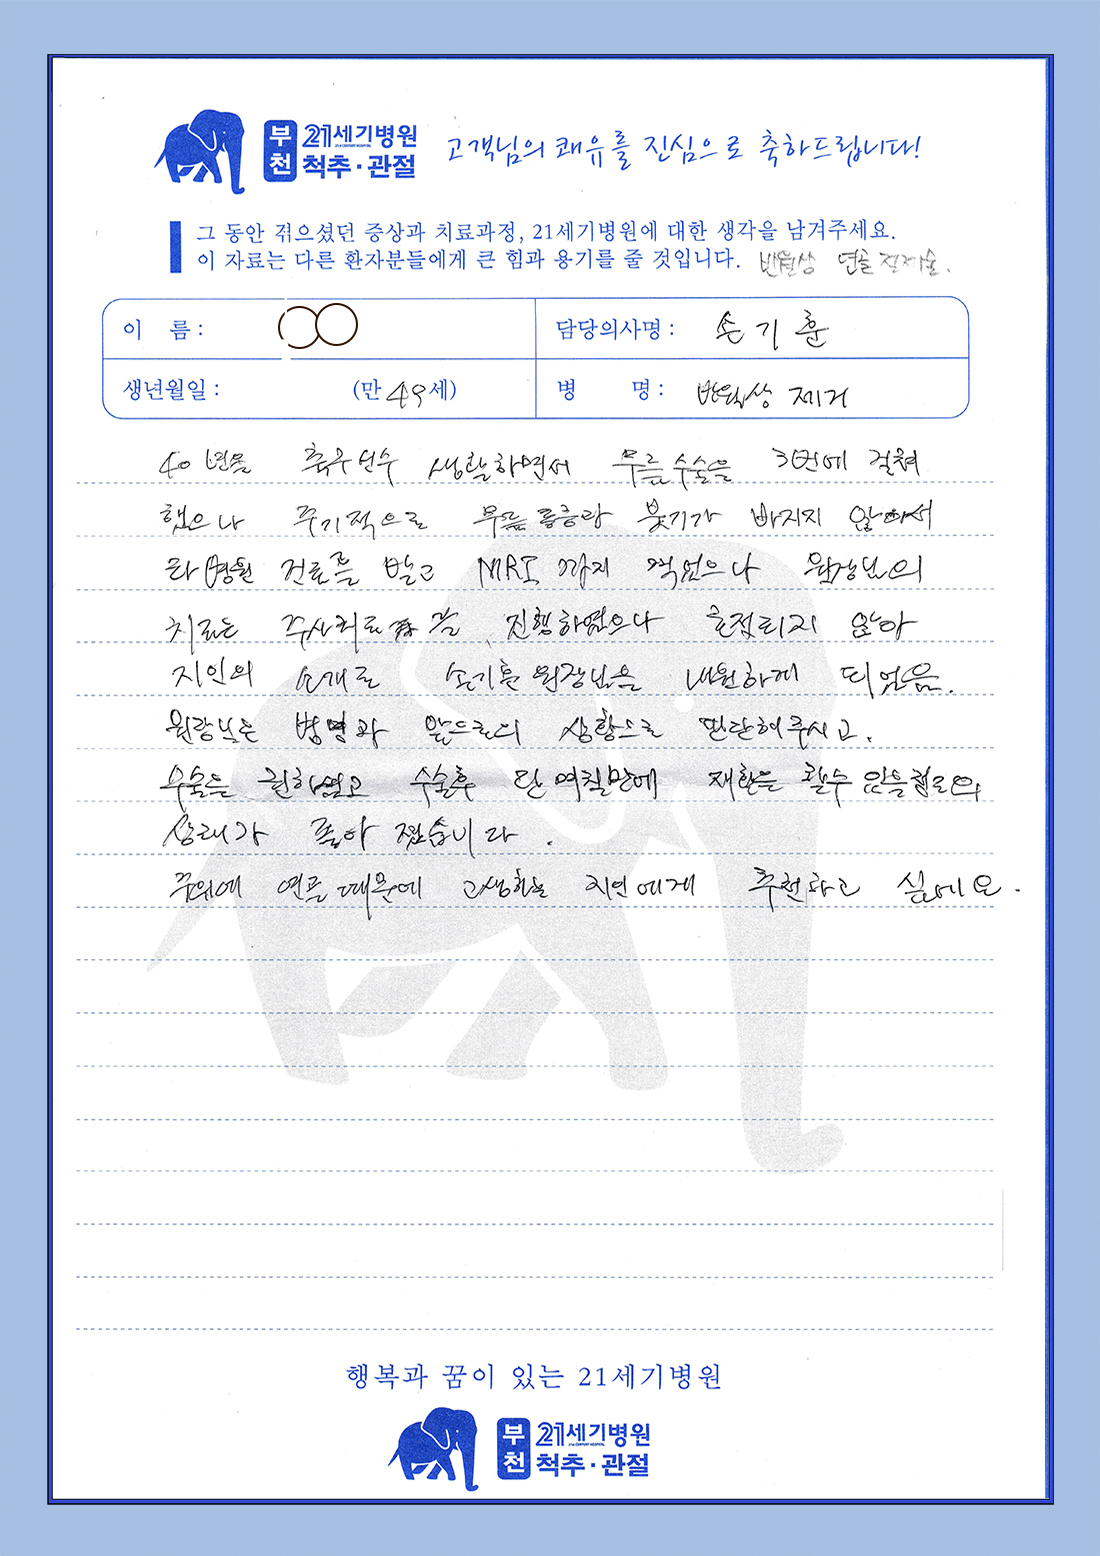 부천 21세기병원 척추·관절
21ST CENTURY HOSPITAL
고객님의 쾌유를 진심으로 축하드립니다!
그 동안 겪으셨던 증상과 치료과정, 21세기병원에 대한 생각을 남겨주세요.
이 자료는 다른 환자분들에게 큰 힘과 용기를 줄 것입니다. 반월상 연골 절제술.
이 름 : 담당의사명 : 손기훈
생년월일 : (만 49세) 병 명 : 반월상 제거
40년을 축구선수 생활하면서 무릎수술을 3번에 걸쳐
했으나 주기적으로 무릎통증과 붓기가 빠지지 않아서
타병원 진료를 받고 MRI 까지 찍었으나 원장님의
치료는 주사치료를 진행하였으나 호전되지 않아
지인의 소개로 손기훈 원장님을 내원하게 되었음.
원장님은 병명과 앞으로의 상황으로 판단해주시고.
수술을 권하였고 수술후 단 며칠만에 재활을 할수 있을정도의
상태가 좋아 졌습니다.
주위에 연골때문에 고생하는 지인에게 추천하고 싶네요.
행복과 꿈이 있는 21세기병원
부천 21세기병원 척추·관절
21ST CENTURY HOSPITAL